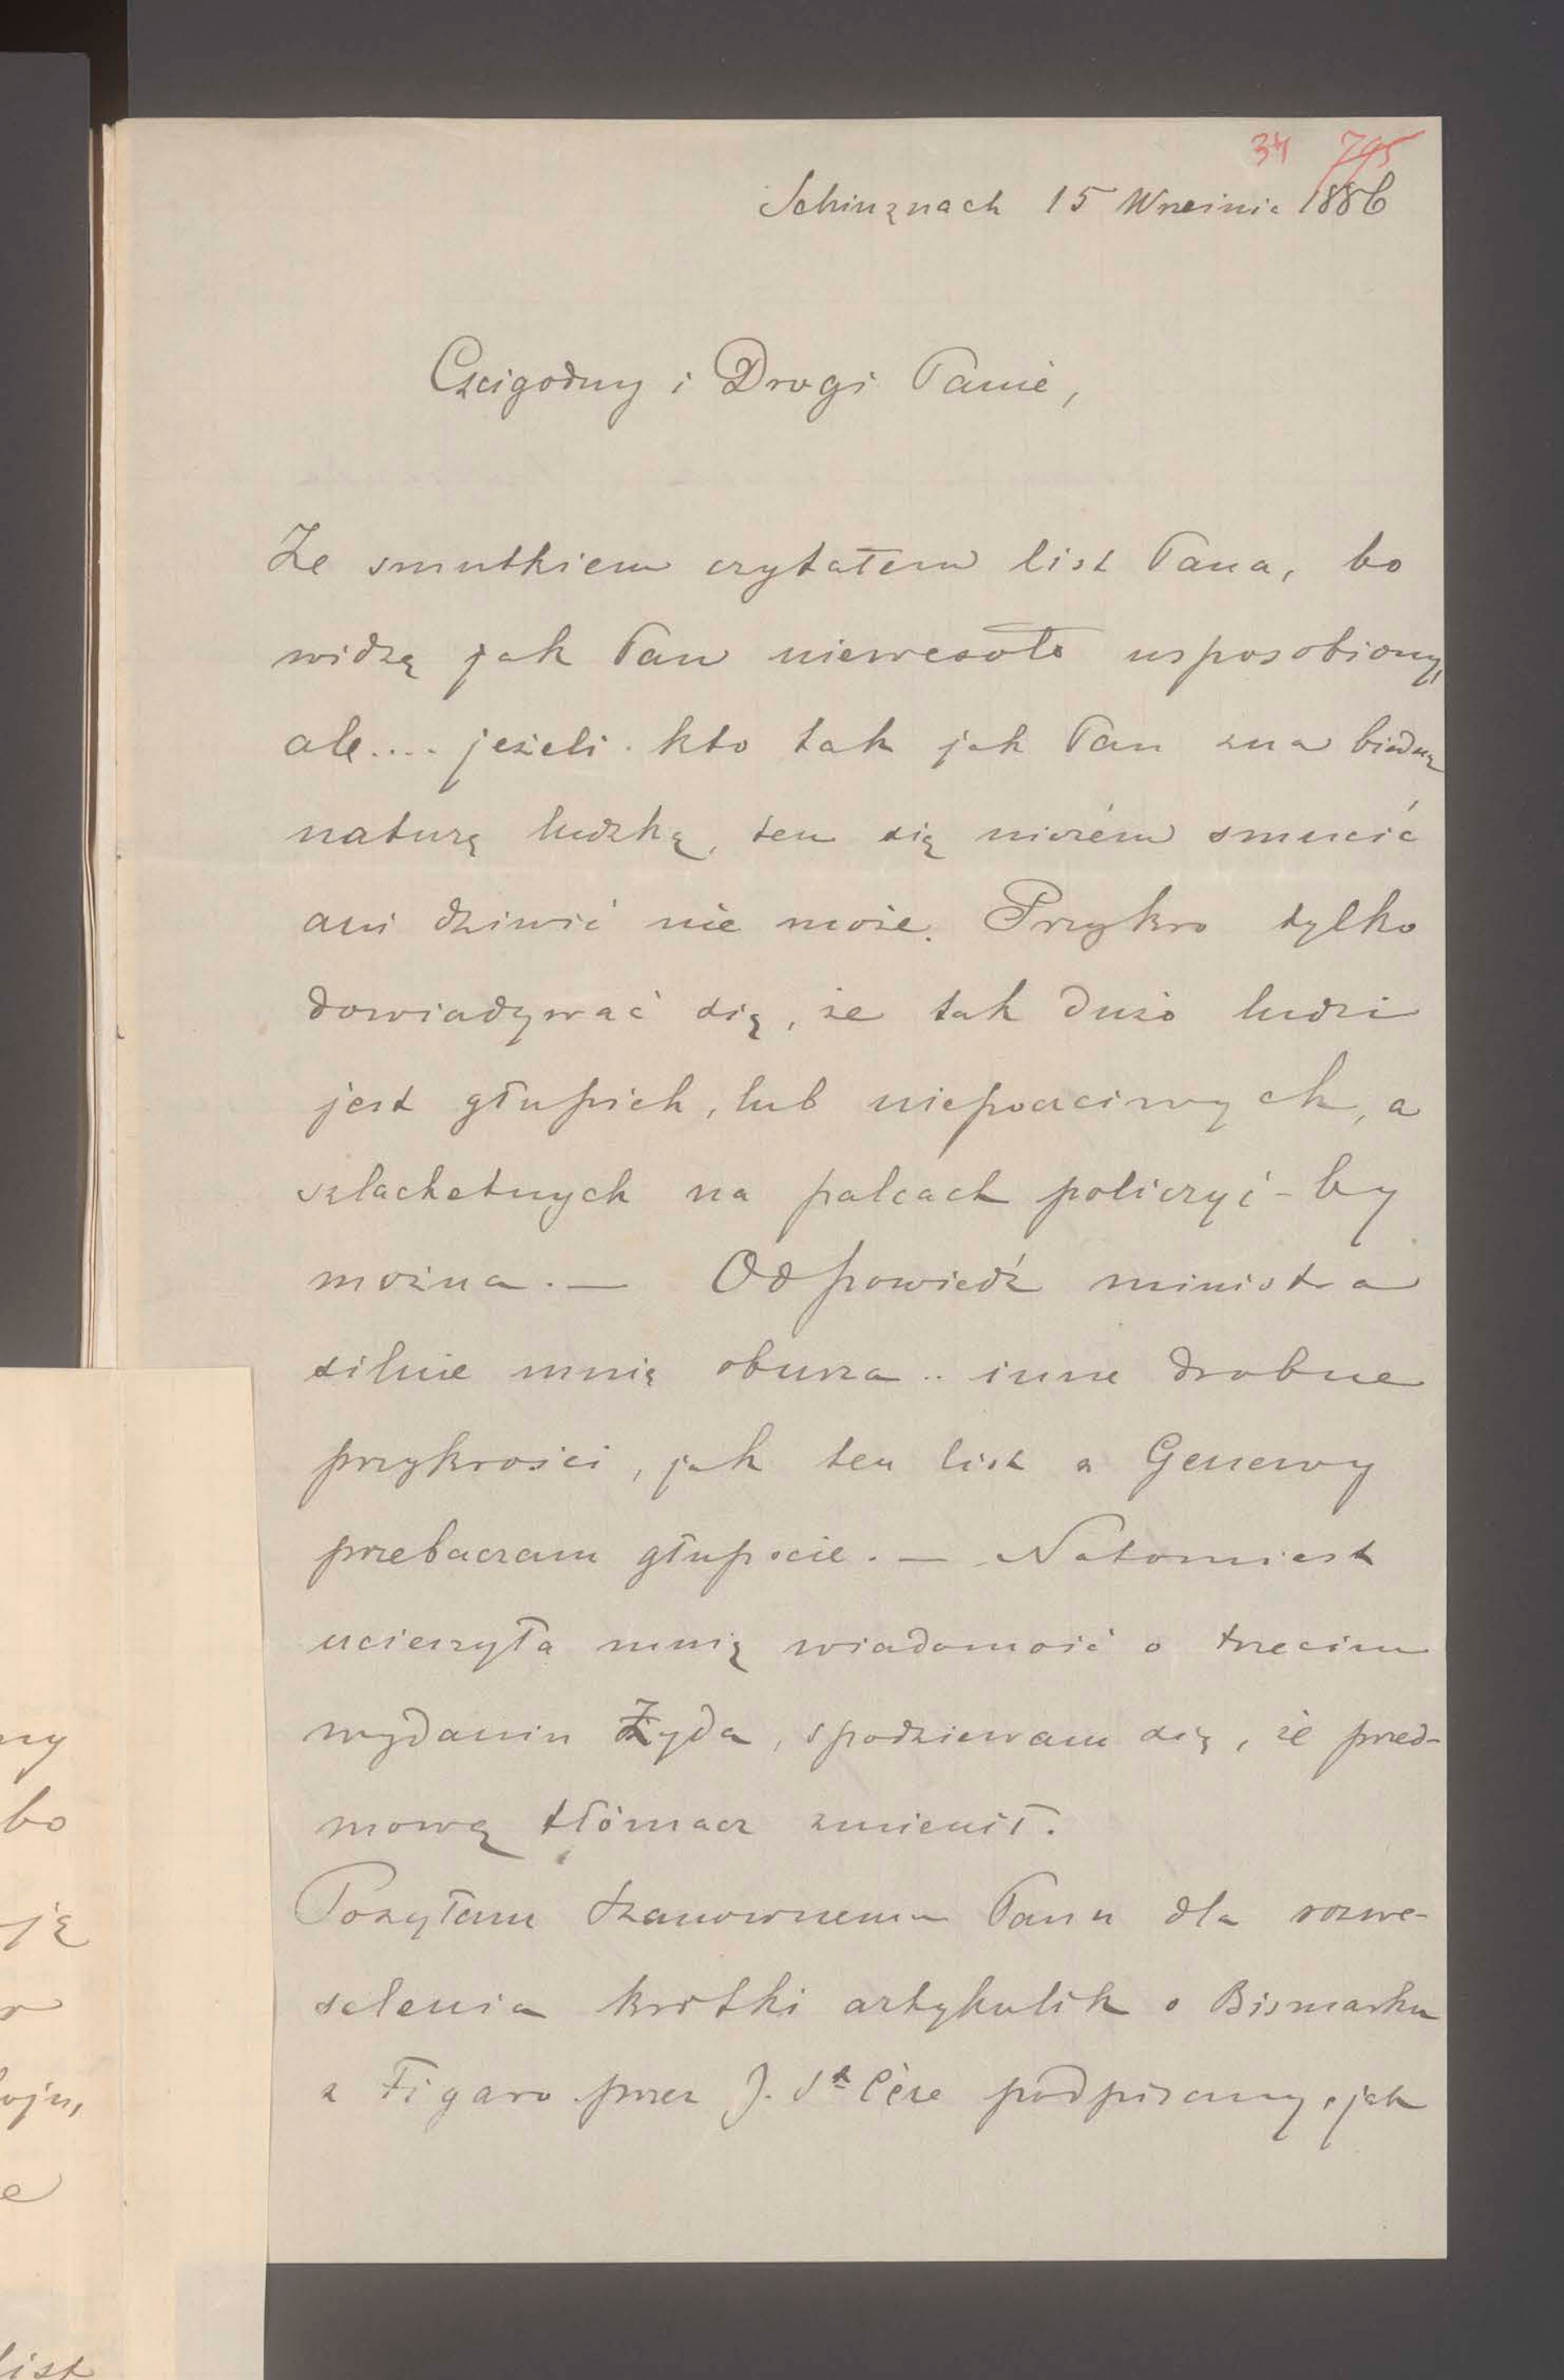 34 795
Schinznach 15 Wrześnie 1886
Czcigodny i Drogi Panie,
Ze smutkiem czytałem list Pana, bo
widzę jak Pan niewesoło usposobiony,
ale.... jeżeli kto tak jak Pan zna biedną
naturę ludzką, ten się niczém smucić
ani dziwić nie może. Przykro tylko
dowiadywać się, że tak dużo ludzi
jest głupich, lub niepoczciwych, a
szlachetnych na palcach policzyć-by
można. — Odpowiedź ministra
silnie mnię oburza.. inne drobne
przykrości, jak ten list z Genewy
przebaczam głupocie. — Natomiast
ucieszyła mnię wiadomość o trzecim
wydaniu Żyda, spodziewam się, że przed-
mowę tłómacz zmienił.
Posyłam Szanownemu Panu dla rozwe-
selenia krótki artykulik o Bismarku
z Figaro przez J. St Cère podpisany, jak
ny
bo
ję
oju,
e
list